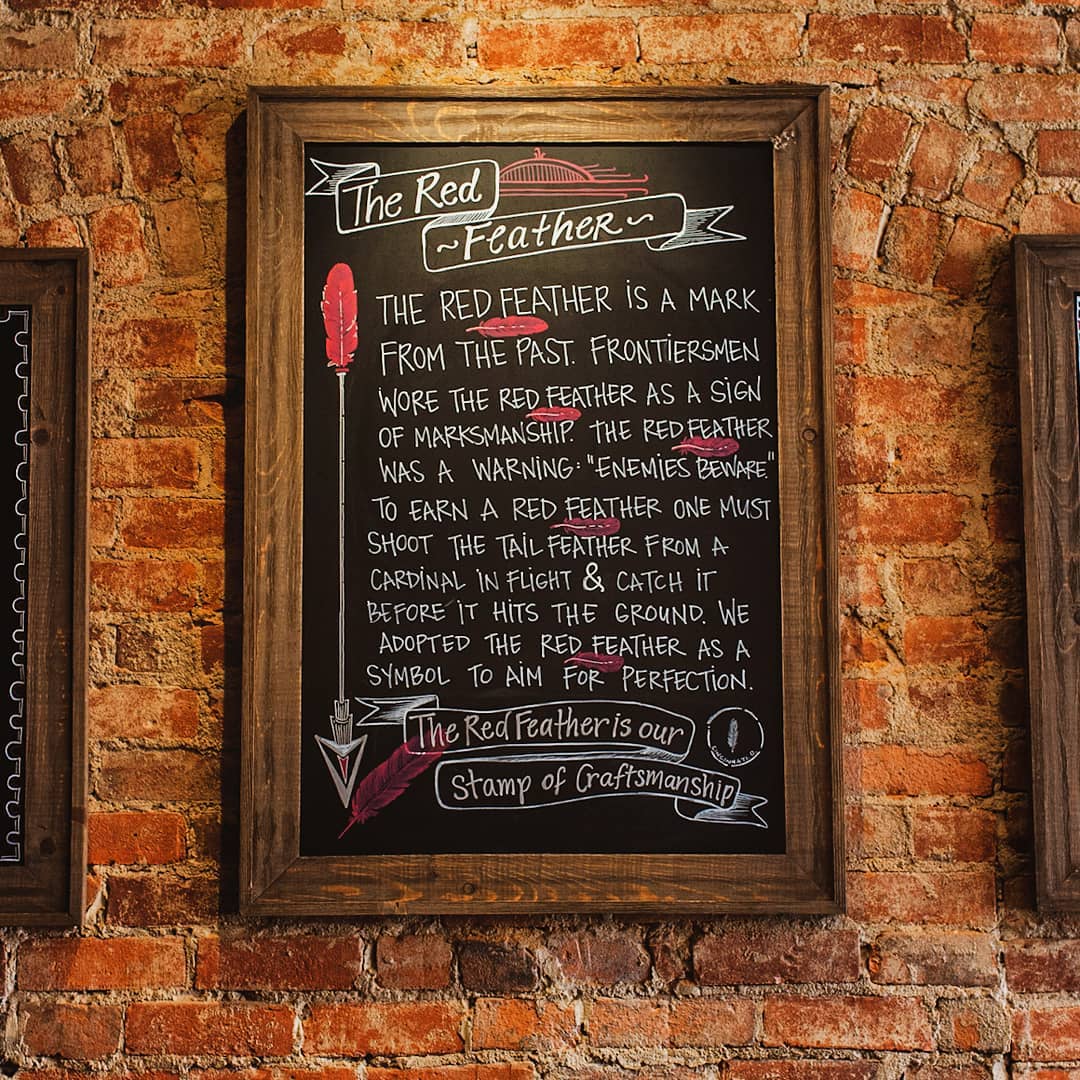 The Red
~Feather~
THE RED FEATHER IS A MARK
FROM THE PAST. FRONTIERSMEN
WORE THE RED FEATHER AS A SIGN
OF MARKSMANSHIP. THE RED FEATHER
WAS A WARNING: "ENEMIES BEWARE."
TO EARN A RED FEATHER ONE MUST
SHOOT THE TAIL FEATHER FROM A
CARDINAL IN FLIGHT & CATCH IT
BEFORE IT HITS THE GROUND. WE
ADOPTED THE RED FEATHER AS A
SYMBOL TO AIM FOR PERFECTION.
The Red Feather is our
Stamp of Craftsmanship
CINCINNATI.O.